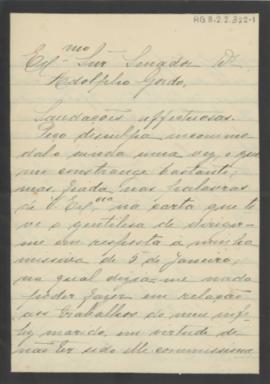 AG 8.2.2.322-1
Exmo Snr Senador Dr
Adolpho Gordo.
Saudações affectuosas.
Peço disculpa incommo
dalo ainda uma vez, o que
me constrange bastante;
mas, fiada nas palavras
de V. Excia na carta que te
ve a gentilesa de dirigir-
me em resposta a minha
missiva de 5 de Janeiro,
na qual dizia-me nada
poder fazer em relação
aos trabalhos do meu infe
liz marido, em virtude de
não ter sido elle commissiona